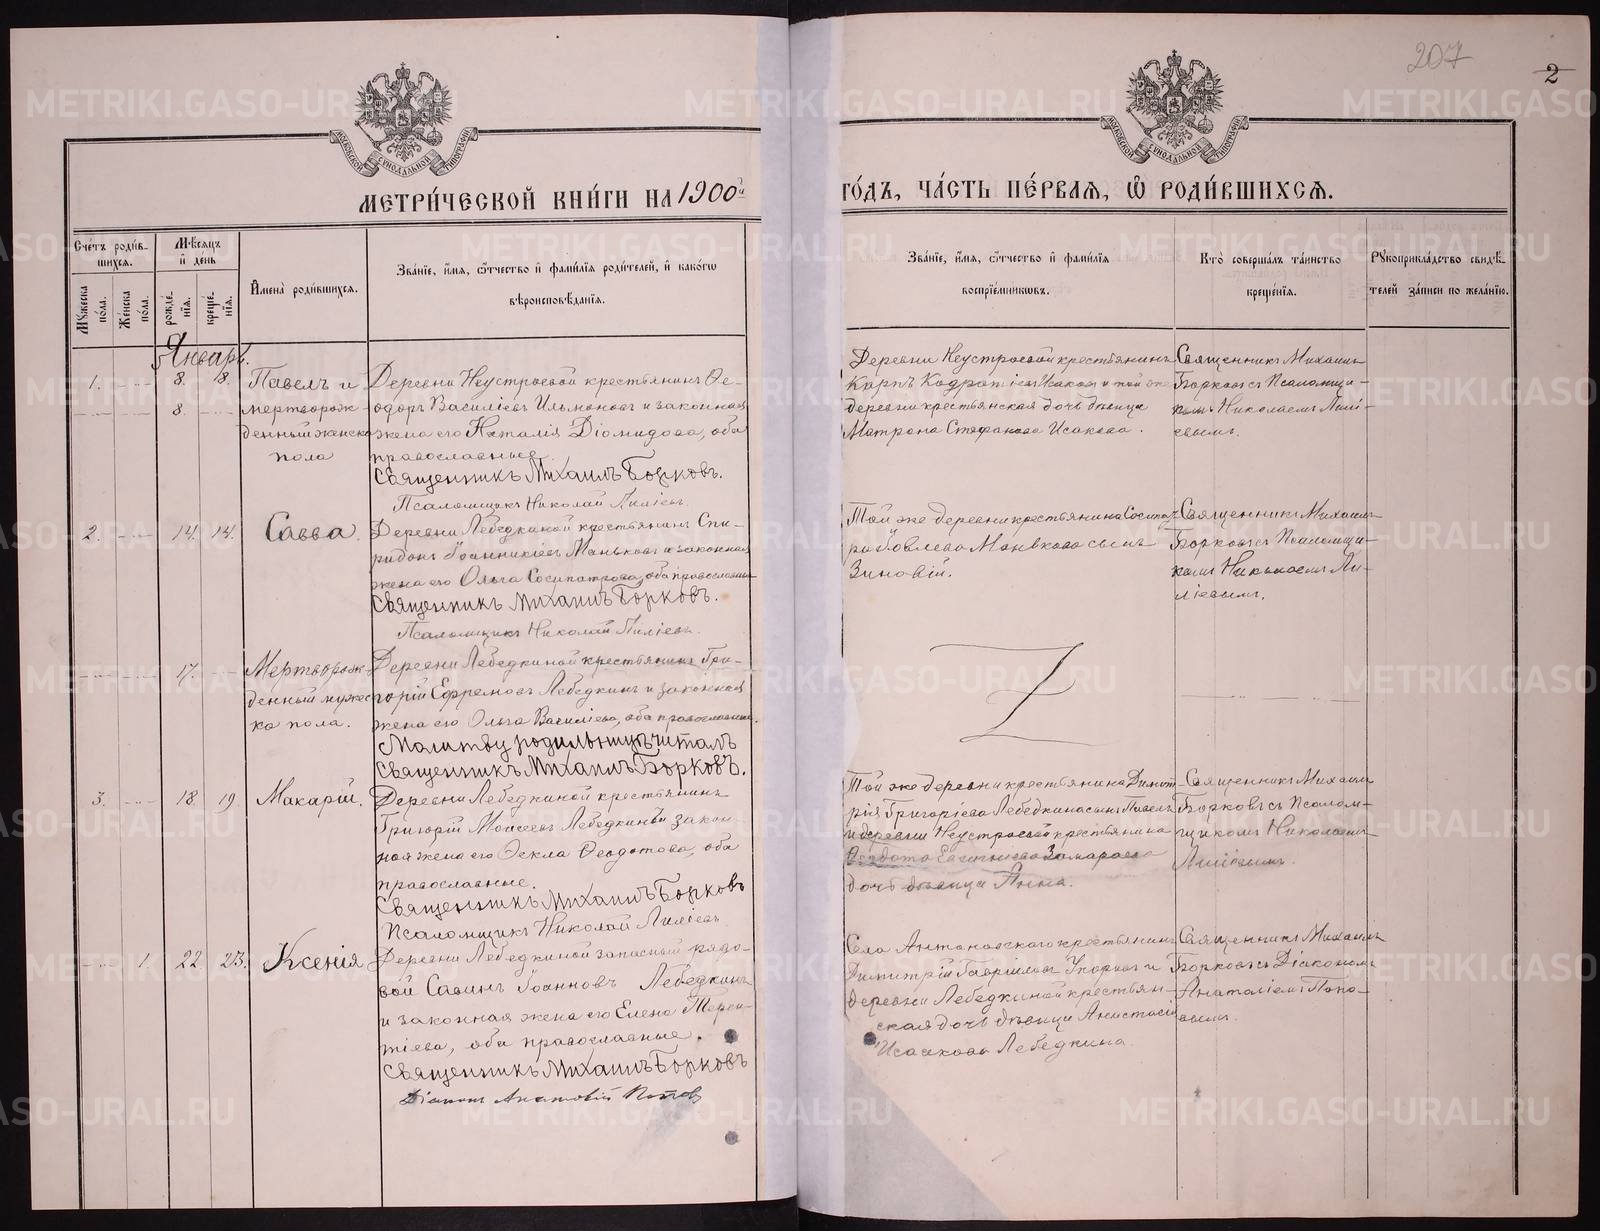 207
2
МОСКОВСКОЙ СѴНОДАЛЬНОЙ ТИПОГРАФІИ
МОСКОВСКОЙ СѴНОДАЛЬНОЙ ТИПОГРАФІИ
МЕТРИ́ЧЕСКОЙ КНИ́ГИ НА 1900й
ГО́ДЪ, ЧА́СТЬ ПЕ́РВАЯ, Ѡ҆ РОДИ́ВШИХСѦ.
Сче́тъ роди́в-
шихся.
Мѣ́сяцъ
и҆ де́нь
Му́жеска
по́ла.
Же́нска
по́ла.
рожде́-
нїя.
креще́-
нїя.
И҆мена̀ роди́вшихся.
Зва́нїе, и҆́мя, ѻ҆́тчество и҆ фами́лїя роди́телей, и҆ како́гѡ
вѣроисповѣ́данїя.
Зва́нїе, и҆́мя, ѻ҆́тчество и҆ фами́лїя
воспрїе́мникѡвъ.
Кто̀ соверша́лъ та́инство
креще́нїя.
Рꙋкоприкла́дство свидѣ́-
телей за́писи по жела́нїю.
Январь.
1.
8.
8.
8.
Павелъ и
мертворож-
денный женска
пола
Деревни Неустроевой крестьянинъ Ѳе-
одоръ Василіевъ Ильиновъ и законная
жена его Наталія Діомидова, оба
православные.
Священникъ Михаилъ Борковъ.
Псаломщикъ Николай Лиліевъ.
Деревни Неустроевой крестьянинъ
Карпъ Исаковъ и той же
деревни крестьянская дочь дѣвица
Матрона Стефанова Исакова.
Священникъ Михаилъ
Борковъ съ Псаломщи-
комъ Николаемъ Лилі-
евымъ.
2.
14.
14.
Савва.
Деревни Лебедкиной крестьянинъ Спи-
ридонъ Іоанникіевъ Маньковъ и законная
жена его Ольга Сосипатрова, оба православные
Священникъ Михаилъ Борковъ.
Псаломщикъ Николай Лиліевъ.
Той же деревни крестьянина Сосипат-
ра Манькова сынъ
Зиновій.
Священникъ Михаилъ
Борковъ съ Псаломщи-
комъ Николаемъ Ли-
ліевымъ.
17.
Мертворож-
денный мужес-
ка пола.
Деревни Лебедкиной крестьянинъ Гри-
горій Ефремовъ Лебедкинъ и законная
жена его Ольга Василіева, оба православные.
Молитву родильницѣ читалъ
Священникъ Михаилъ Борковъ.
3.
18.
19.
Макарій.
Деревни Лебедкиной крестьянинъ
Григорій Моисеевъ Лебедкинъ и закон-
ная жена его Ѳекла Ѳеодотова, оба
православные.
Священникъ Михаилъ Борковъ
Псаломщикъ Николай Лиліевъ
Той же деревни крестьянина Димит-
рія Григоріева Лебедкина сынъ Павелъ
и деревни Неустроевой крестьянина
Ѳеодота Замараева
дочь дѣвица Анна.
Священникъ Михаилъ
Борковъ съ Псалом-
щикомъ Николаемъ
Лиліевымъ.
1.
22.
23.
Ксенія
Деревни Лебедкиной запасный рядо-
вой Савинъ Іоанновъ Лебедкинъ
и законная жена его Елена Терен-
тіева, оба православные.
Священникъ Михаилъ Борковъ
Діаконъ Анатолій Поповъ
Села Антоновскаго крестьянинъ
Димитрій Гавріиловъ и
деревни Лебедкиной крестьян-
ская дочь дѣвица Анастасія
Исаакова Лебедкина.
Священникъ Михаилъ
Борковъ съ Діакономъ
Анатоліемъ Попо-
вымъ.
METRIKI.GASO-URAL.RU